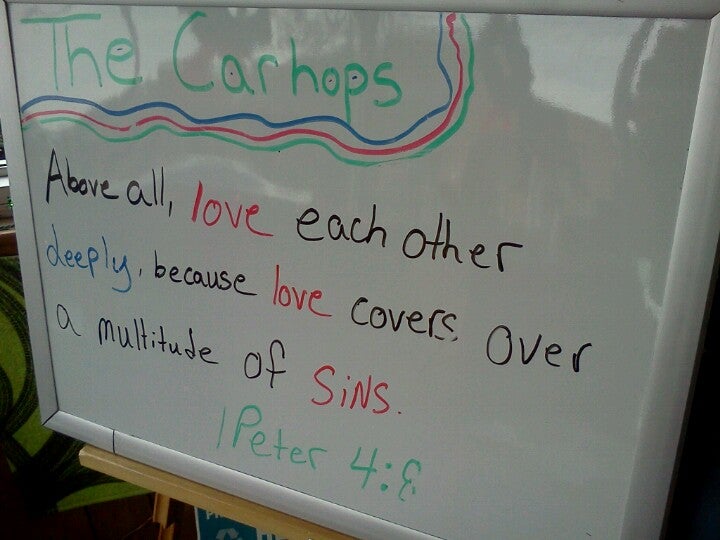 The Carhops
Above all, love each other
deeply, because love covers over
a multitude of sins.
1 Peter 4:8